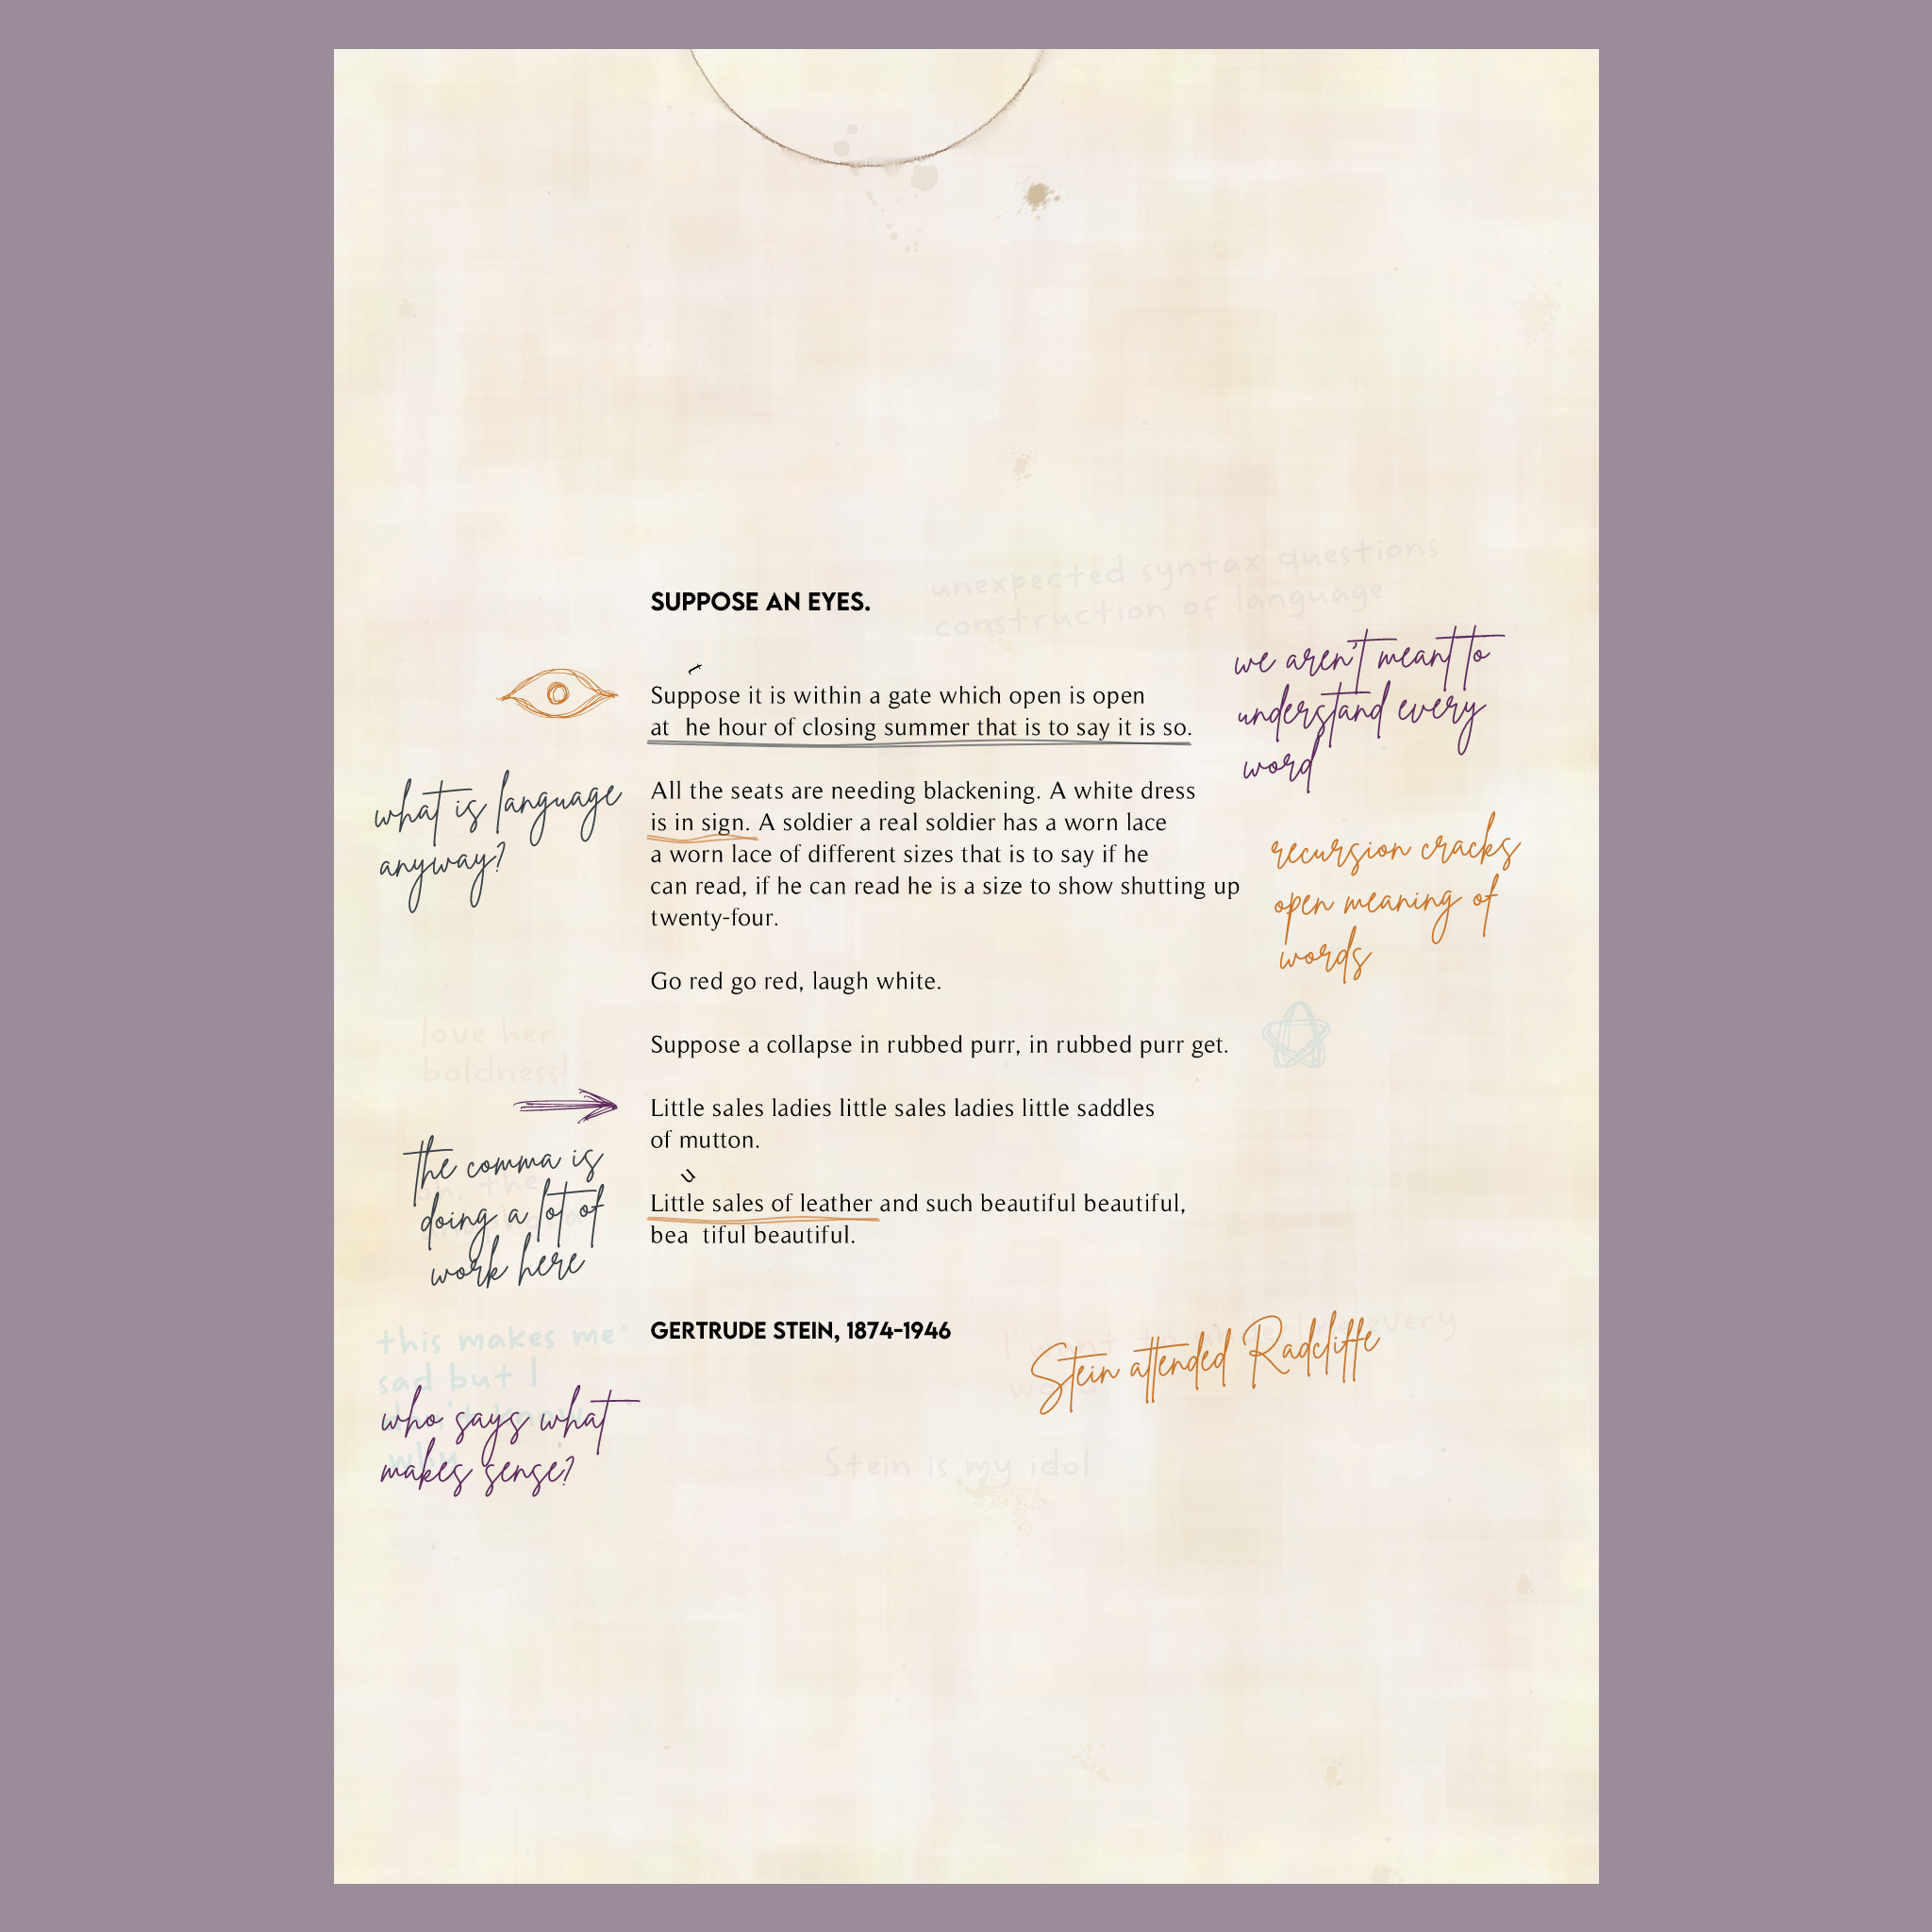 unexpected syntax questions
construction of language
SUPPOSE AN EYES.
we aren't meant to
understand every
word
t
Suppose it is within a gate which open is open
at he hour of closing summer that is to say it is so.
what is language
anyway?
All the seats are needing blackening. A white dress
is in sign. A soldier a real soldier has a worn lace
a worn lace of different sizes that is to say if he
can read, if he can read he is a size to show shutting up
twenty-four.
recursion cracks
open meaning of
words
Go red go red, laugh white.
love her
boldness!
Suppose a collapse in rubbed purr, in rubbed purr get.
Little sales ladies little sales ladies little saddles
of mutton.
the comma is
doing a lot of
work here
oh, the
u
Little sales of leather and such beautiful beautiful,
bea tiful beautiful.
GERTRUDE STEIN, 1874-1946
Stein attended Radcliffe
I want to every
this makes me
sad but I
don't know
why
who says what
makes sense?
Stein is my idol